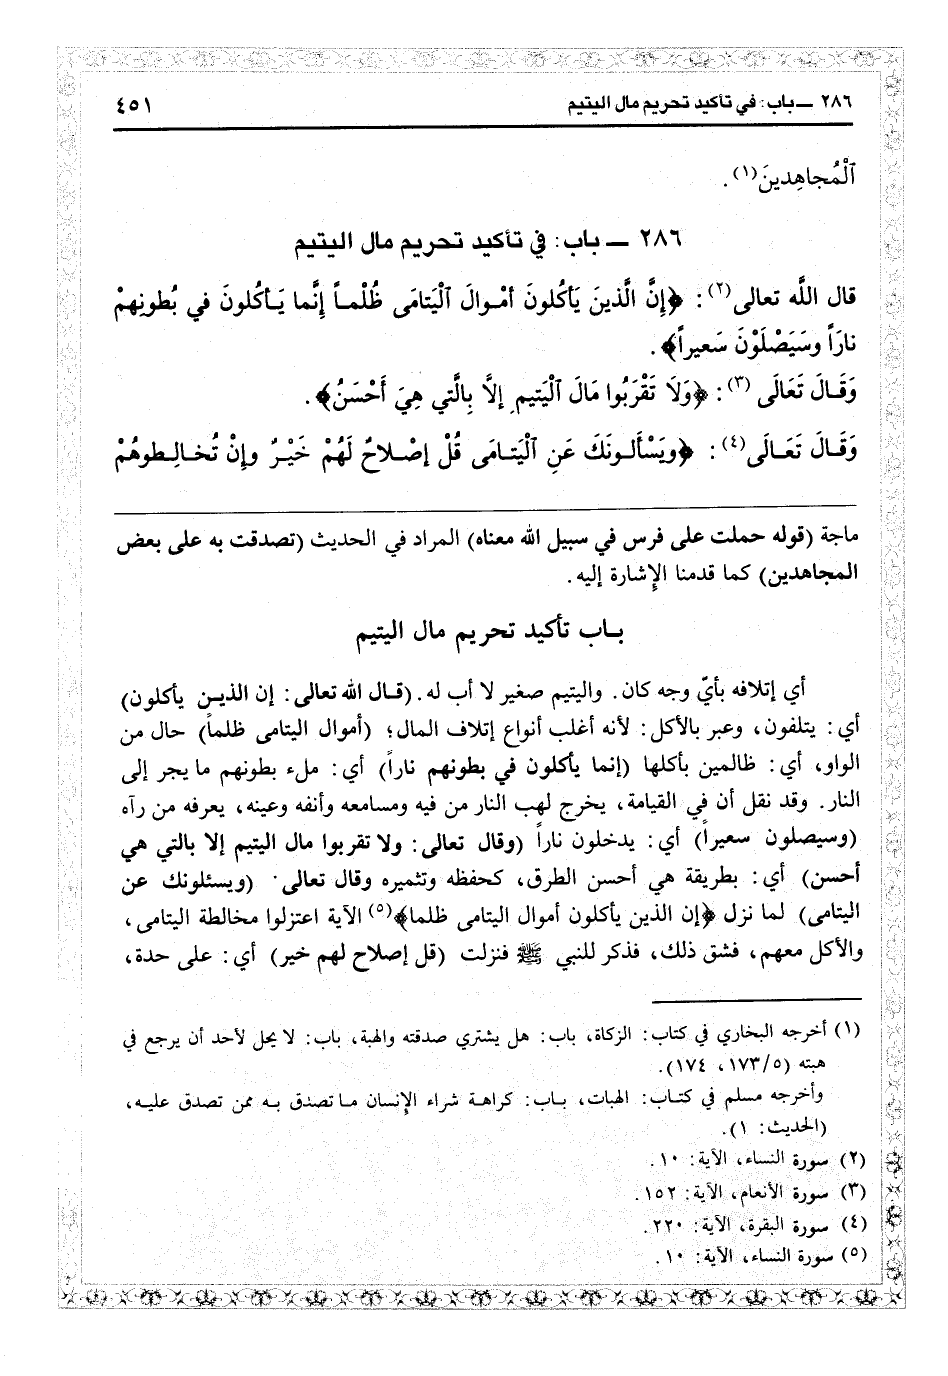 ٢٨٦ ــ باب: في تأكيد تحريم مال اليتيم ٤٥١
ٱلْمُجاهِدينَ(١).
٢٨٦ ــ باب: في تأكيد تحريم مال اليتيم
قال اللَّه تعالى(٢): ﴿إِنَّ الَّذينَ يَأكُلونَ أمْوالَ ٱلْيَتامَى ظُلْماً إِنَّما يَأكُلونَ في بُطونِهِمْ
نارَاً وسَيَصْلَوْنَ سَعيراً﴾.
وَقَالَ تَعَالَى (٣): ﴿وَلَا تَقْرَبُوا مَالَ ٱلْيَتيمِ إلَّا بِالَّتي هِيَ أَحْسَنُ﴾.
وَقَالَ تَعَالَى(٤): ﴿ويَسْأَلونَكَ عَنِ ٱلْيَتامَى قُلْ إصْلاحٌ لَهُمْ خَيْرٌ وإنْ تُخالِطوهُمْ
ماجة (قوله حملت على فرس في سبيل الله معناه) المراد في الحديث (تصدقت به على بعض
المجاهدين) كما قدمنا الإِشارة إليه.
باب تأكيد تحريم مال اليتيم
أي إتلافه بأيّ وجه كان. واليتيم صغير لا أب له. (قال الله تعالى: إن الذين يأكلون)
أي: يتلفون، وعبر بالأكل: لأنه أغلب أنواع إتلاف المال؛ (أموال اليتامى ظلماً) حال من
الواو، أي: ظالمين بأكلها (إنما يأكلون في بطونهم ناراً) أي: ملء بطونهم ما يجر إلى
النار. وقد نقل أن في القيامة، يخرج لهب النار من فيه ومسامعه وأنفه وعينه، يعرفه من رآه
(وسيصلون سعيراً) أي: يدخلون ناراً (وقال تعالى: ولا تقربوا مال اليتيم إلا بالتي هي
أحسن) أي: بطريقة هي أحسن الطرق، كحفظه وتثميره وقال تعالى. (ويسئلونك عن
اليتامى) لما نزل ﴿إن الذين يأكلون أموال اليتامى ظلما﴾(٥) الآية اعتزلوا مخالطة اليتامى،
والأكل معهم، فشق ذلك، فذكر للنبي ﷺ فنزلت (قل إصلاح لهم خير) أي: على حدة،
(١) أخرجه البخاري في كتاب: الزكاة، باب: هل يشتري صدقته والهبة، باب: لا يحل لأحد أن يرجع في
هبته (١٧٣/٥، ١٧٤).
وأخرجه مسلم في كتاب: الهبات، باب: كراهة شراء الإنسان ما تصدق به ممن تصدق عليه،
(الحديث: ١).
(٢) سورة النساء، الآية: ١٠.
(٣) سورة الأنعام، الآية: ١٥٢.
(٤) سورة البقرة، الآية: ٢٢٠.
(٥) سورة النساء، الآية: ١٠.